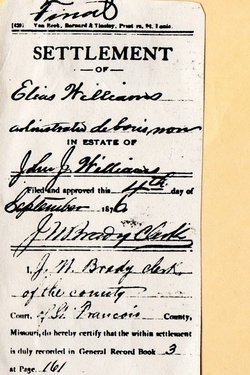 Final
[420] Van Beek, Barnard & Tinsley, Print rs, St. Louis.
SETTLEMENT
—OF—
Elias Williams
administrator de bonis non
IN ESTATE OF
John J Williams
Filed and approved this 4th day of
September 187
J N Brady Clerk
I, J. N. Brady clerk
of the county
Court, of St Francois County,
Missouri, do hereby certify that the within settlement
is duly recorded in General Record Book 3
at Page 161